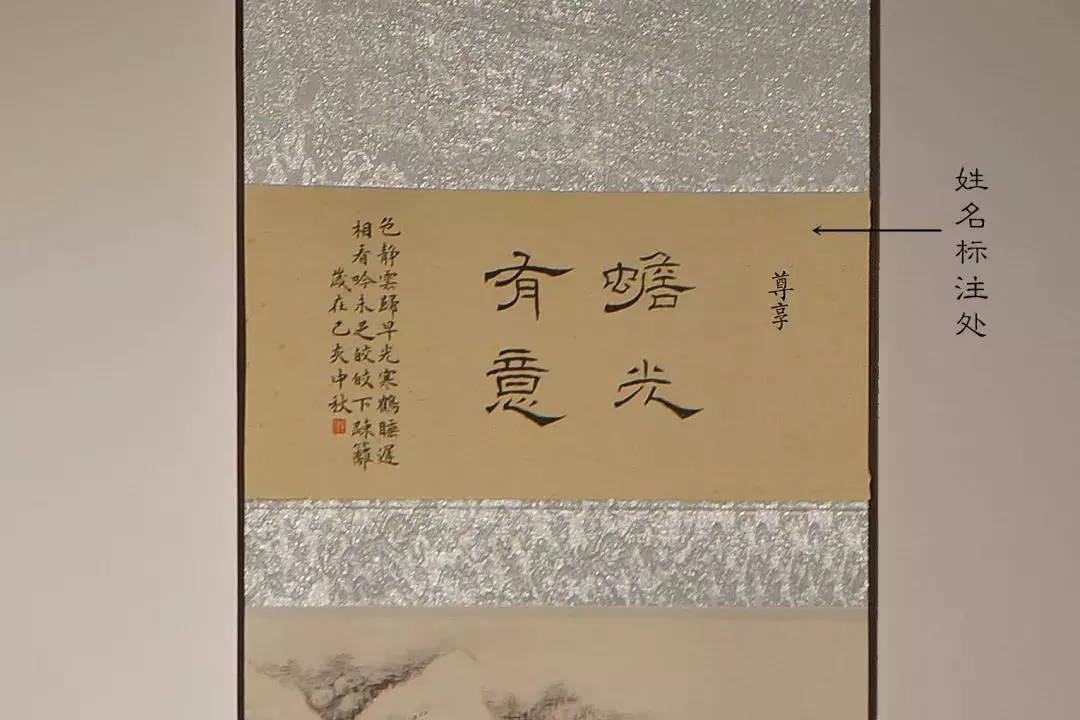 姓名标注处
尊享
蟾光
有意
色静雲歸早光寒鶴睡遲
相看吟未足皎皎下踈籬
歲在己亥中秋